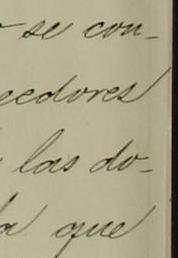 se con-
eedores
las do-
que